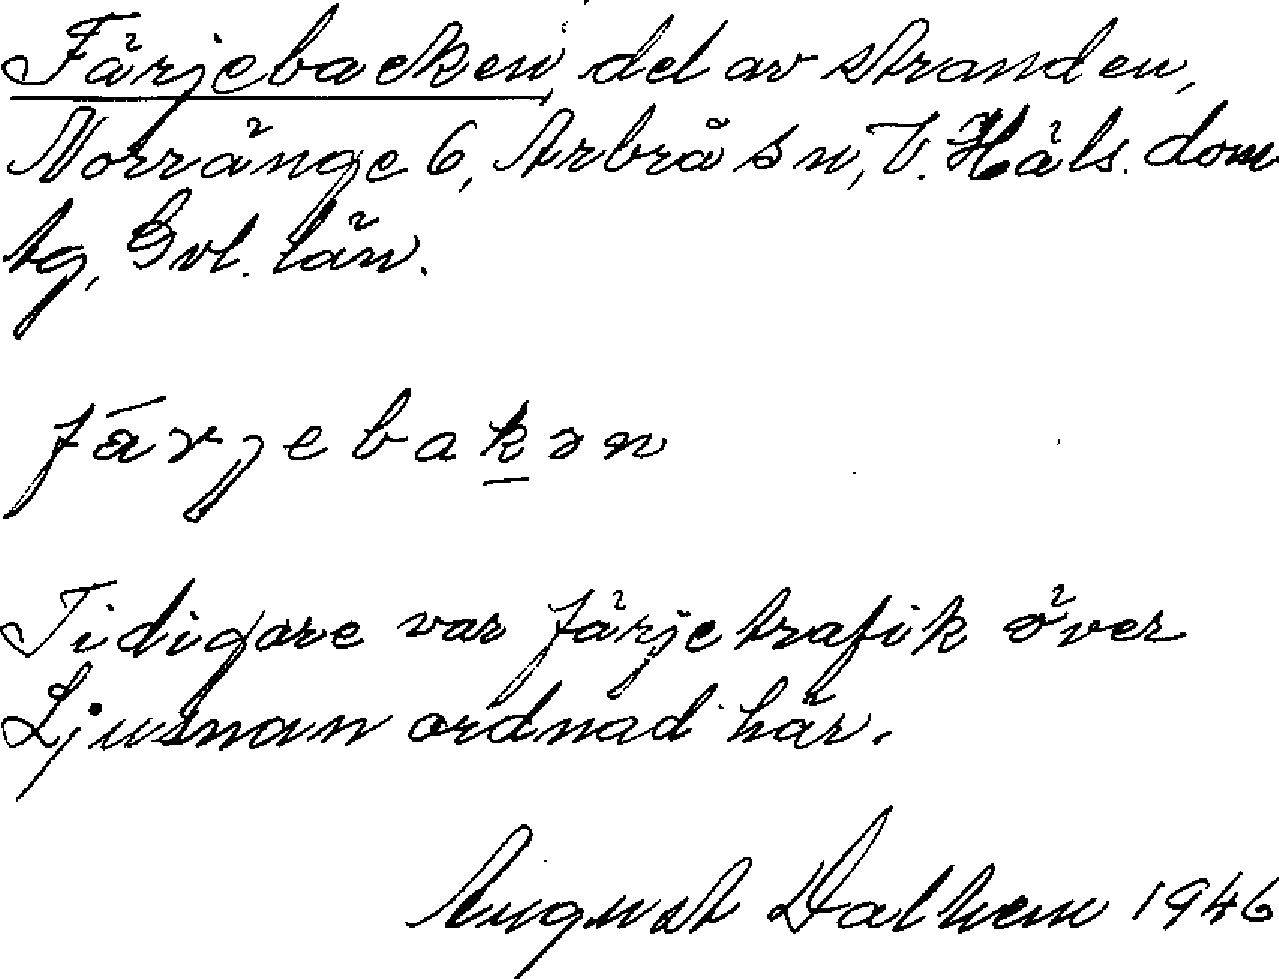 Färjebacken, del av stranden,
Norränge 6, Arbrå sn, V. Häls. dom
tg, Gvl. län.
färjebakən
Tidigare var färjetrafik över
Ljusnan ordnad här.
August Dalhem 1946